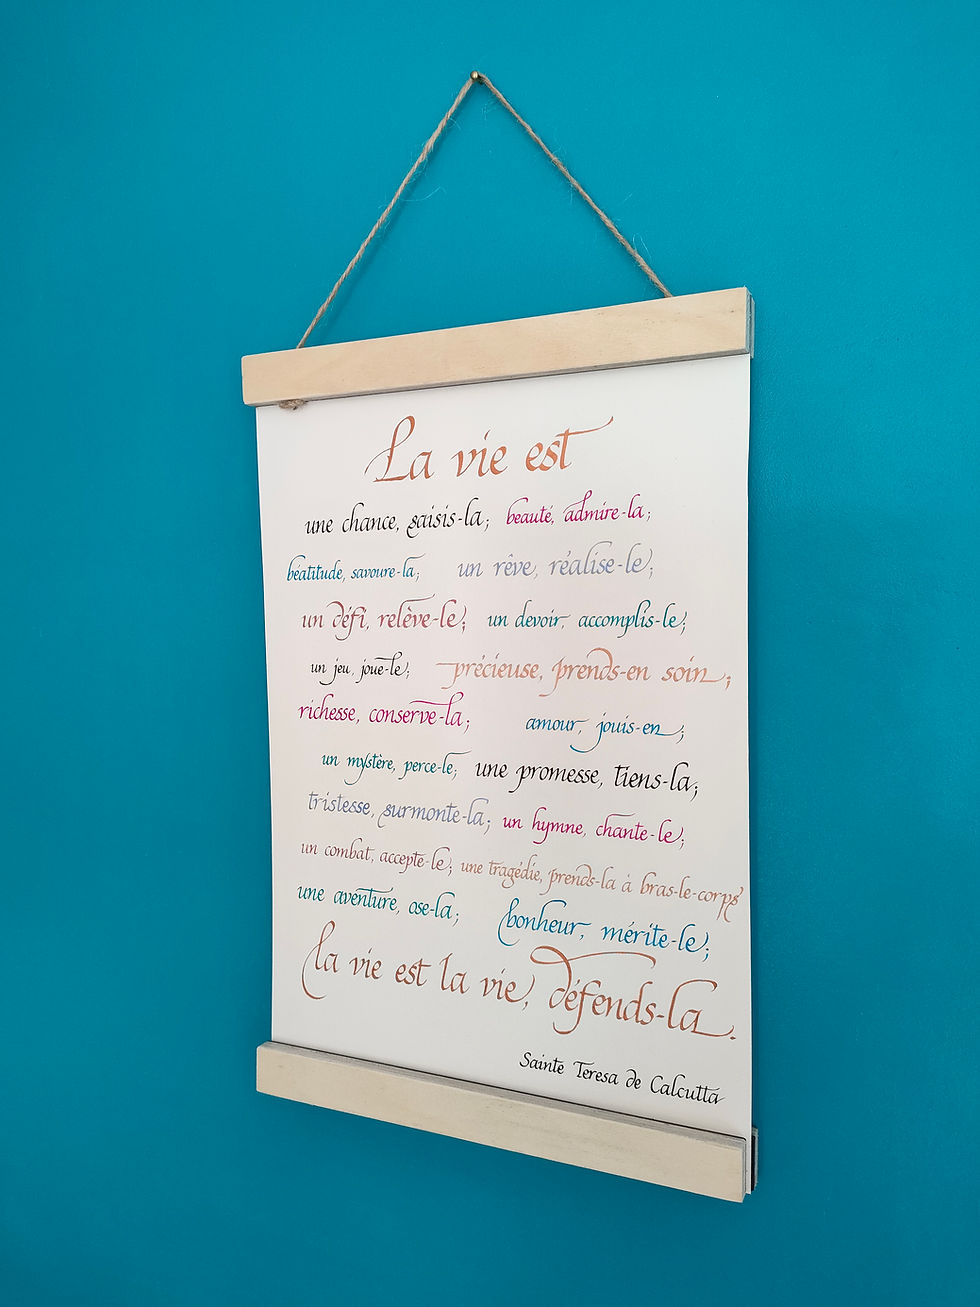 La vie est
une chance, saisis-la; beauté, admire-la;
béatitude, savoure-la; un rêve, réalise-le;
un défi, relève-le; un devoir, accomplis-le;
un jeu, joue-le; précieuse, prends-en soin;
richesse, conserve-la; amour, jouis-en;
un mystère, perce-le; une promesse, tiens-la;
tristesse, surmonte-la; un hymne, chante-le;
un combat, accepte-le; une tragédie, prends-la à bras-le-corps
une aventure, ose-la; bonheur, mérite-le;
la vie est la vie, défends-la.
Sainte Teresa de Calcutta